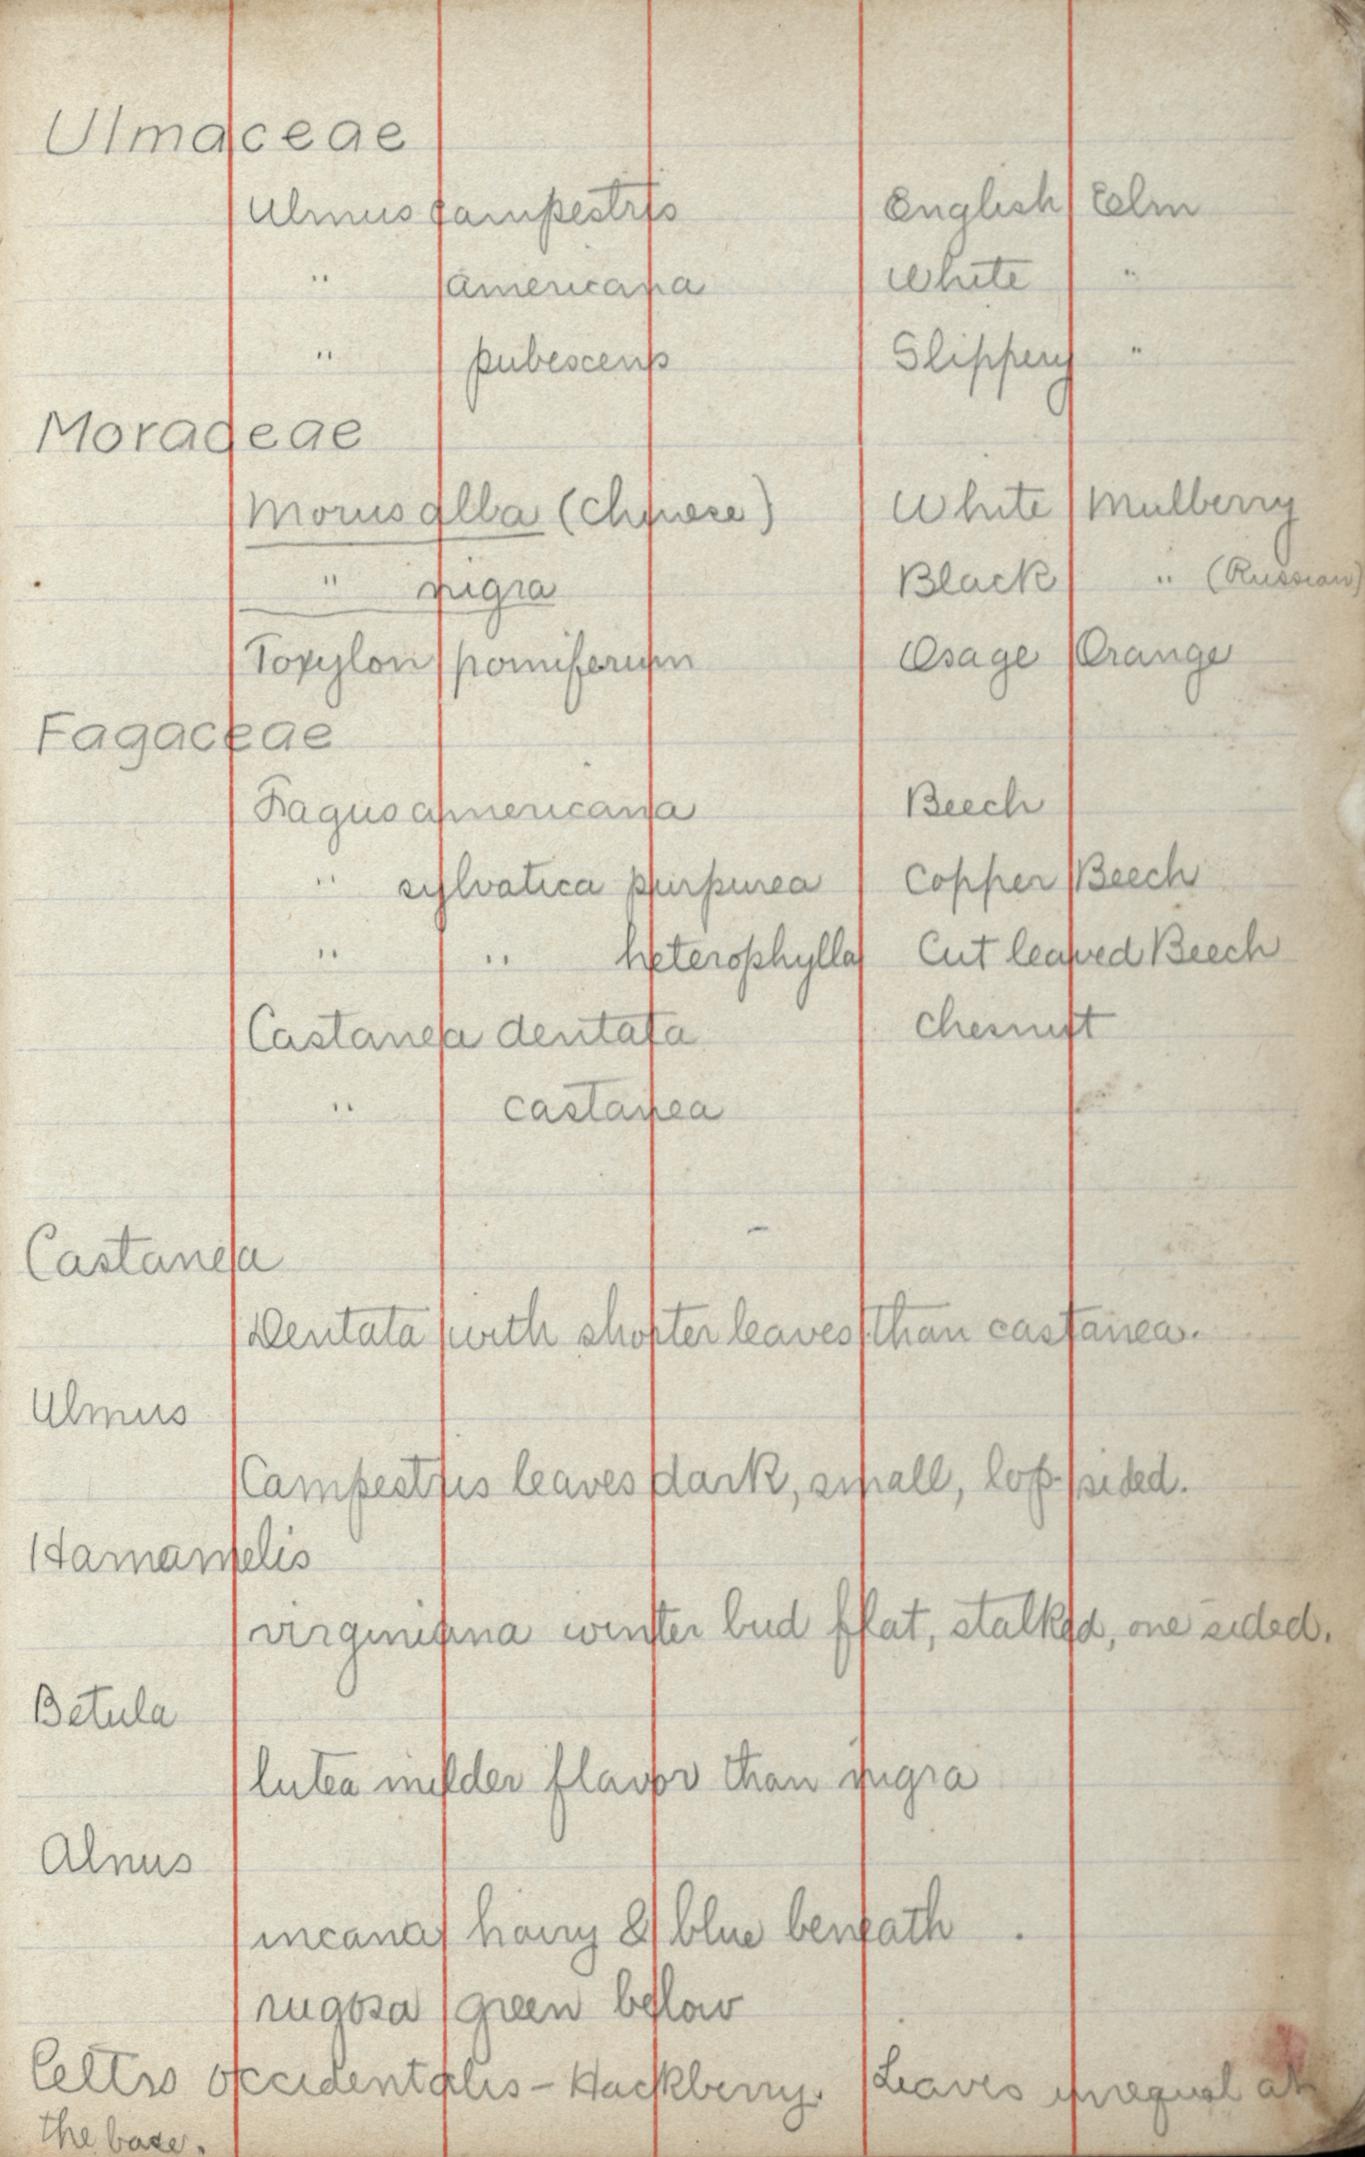 Ulmaceae
Ulmus campestris English Elm
" americana White "
" pubescens Slippery "
Moraceae
Morus alba (Chinese) White Mulberry
" nigra Black " (Russian)
Toxylon pomiferum Osage Orange
Fagaceae
Fagus americana Beech
" sylvatica purpurea Copper Beech
" " heterophylla Cut leaved Beech
Castanea dentata Chesnut
" castanea
Castanea
Dentata with shorter leaves than castanea.
Ulmus
Campestris leaves dark, small, lop-sided.
Hamamelis
virginiana winter bud flat, stalked, one sided.
Betula
lutea milder flavor than nigra
Alnus
incana hairy & blue beneath .
rugosa green below
Celtis occidentalis - Hackberry. Leaves unequal at
the base.